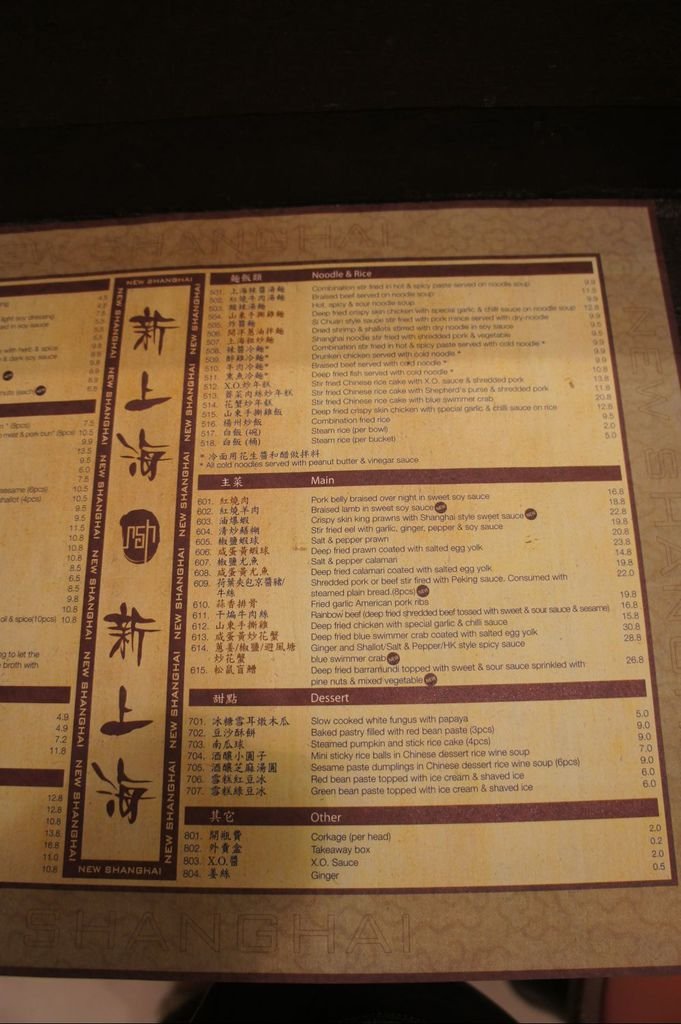 NEW SHANGHAI
新上海
新上海
麵飯類 Noodle & Rice
501. 上海辣醬湯麵 Combination stir fried in hot & spicy paste served on noodle soup 9.9
502. 紅燒牛肉湯麵 Braised beef served on noodle soup 11.5
503. 酸辣湯麵 Hot, spicy & sour noodle soup 9.9
504. 山東手撕雞麵 Deep fried crispy skin chicken with special garlic & chilli sauce on noodle soup 12.8
505. 炸醬麵 Si Chuan style sauce stir fried with pork mince served with dry-noodle 9.9
506. 開洋蔥油拌麵 Dried shrimp & shallots stirred with dry noodle in soy sauce 9.9
507. 上海粗炒麵 Shanghai noodle stir fried with shredded pork & vegetable 9.5
508. 辣醬冷麵* Combination stir fried in hot & spicy paste served with cold noodle * 9.9
509. 醉雞冷麵* Drunken chicken served with cold noodle * 9.9
510. 牛肉冷麵* Braised beef served with cold noodle * 9.9
511. 熏魚冷麵* Deep fried fish served with cold noodle * 10.8
512. X.O.炒年糕 Stir fried Chinese rice cake with X.O. sauce & shredded pork 13.8
513. 薺菜肉絲炒年糕 Stir fried Chinese rice cake with Shepherd's purse & shredded pork 11.8
514. 花蟹炒年糕 Stir fried Chinese rice cake with blue swimmer crab 20.8
515. 山東手撕雞飯 Deep fried crispy skin chicken with special garlic & chilli sauce on rice 12.8
516. 楊州炒飯 Combination fried rice 9.5
517. 白飯 (碗) Steam rice (per bowl) 2.0
518. 白飯 (桶) Steam rice (per bucket) 5.0
* 冷面用花生醬和醋做拌料
* All cold noodles served with peanut butter & vinegar sauce
主菜 Main
601. 紅燒肉 Pork belly braised over night in sweet soy sauce 16.8
602. 紅燒羊肉 Braised lamb in sweet soy sauce NEW 18.8
603. 油爆蝦 Crispy skin king prawns with Shanghai style sweet sauce NEW 22.8
604. 清炒鱔糊 Stir fried eel with garlic, ginger, pepper & soy sauce 19.8
605. 椒鹽蝦球 Salt & pepper prawn 20.8
606. 咸蛋黃蝦球 Deep fried prawn coated with salted egg yolk 23.8
607. 椒鹽尤魚 Salt & pepper calamari 14.8
608. 咸蛋黃尤魚 Deep fried calamari coated with salted egg yolk 19.8
609. 荷葉夾包京醬豬/ Shredded pork or beef stir fired with Peking sauce. Consumed with 22.0
牛絲 steamed plain bread.(8pcs) NEW
610. 蒜香排骨 Fried garlic American pork ribs 19.8
611. 干煸牛肉絲 Rainbow beef (deep fried shredded beef tossed with sweet & sour sauce & sesame) 16.8
612. 山東手撕雞 Deep fried chicken with special garlic & chilli sauce 15.8
613. 咸蛋黃炒花蟹 Deep fried blue swimmer crab coated with salted egg yolk 30.8
614. 蔥姜/椒鹽/避風塘 Ginger and Shallot/Salt & Pepper/HK style spicy sauce 28.8
炒花蟹 blue swimmer crab NEW
615. 松鼠盲鰽 Deep fried barramundi topped with sweet & sour sauce sprinkled with 26.8
pine nuts & mixed vegetable NEW
甜點 Dessert
701. 冰糖雪耳燉木瓜 Slow cooked white fungus with papaya 5.0
702. 豆沙酥餅 Baked pastry filled with red bean paste (3pcs) 9.0
703. 南瓜球 Steamed pumpkin and stick rice cake (4pcs) 9.0
704. 酒釀小圓子 Mini sticky rice balls in Chinese dessert rice wine soup 7.0
705. 酒釀芝麻湯圓 Sesame paste dumplings in Chinese dessert rice wine soup (6pcs) 9.0
706. 雪糕紅豆冰 Red bean paste topped with ice cream & shaved ice 6.0
707. 雪糕綠豆冰 Green bean paste topped with ice cream & shaved ice 6.0
其它 Other
801. 開瓶費 Corkage (per head) 2.0
802. 外賣盒 Takeaway box 0.2
803. X.O.醬 X.O. Sauce 2.0
804. 姜絲 Ginger 0.5
SHANGHAI